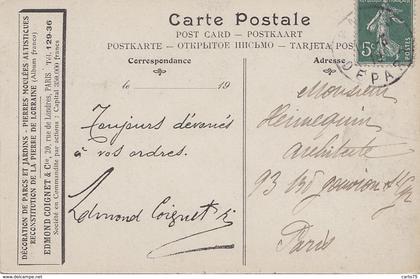 Carte Postale
POST CARD - POSTKAART
POSTKARTE - ОТКРЫТОЕ ПИСЬМО - TARJETA POS
Correspondance
Adresse
le 19
DÉCORATION DE PARCS ET JARDINS - PIERRES MOULÉES ARTISTIQUES
RECONSTITUTION DE LA PIERRE DE LORRAINE (Album franco)
EDMOND COIGNET & Cie, 20, rue de Londres, PARIS Tél. 129-36
Société en Commandite par actions : Capital 350.000 francs
Toujours dévoués
à vos ordres.
Edmond Coignet
Monsieur
Hennequin
Architecte
93 Bd Gouvion St Cyr
Paris
5c
POSTES
DEPART
carto75